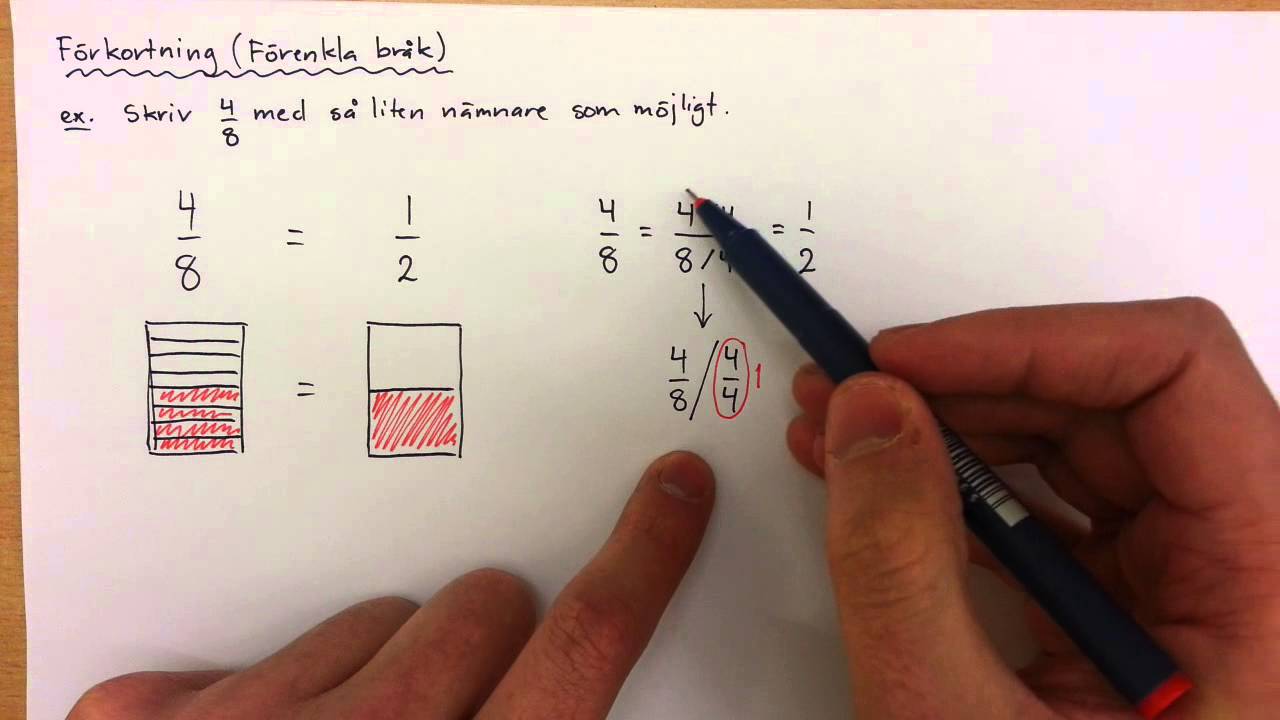 Förkortning (Förenkla bråk)
ex. Skriv 4/8 med så liten nämnare som möjligt.
4/8 = 1/2
4/8 = 4/4 / 8/4 = 1/2
=
4/8 / 4/4 1